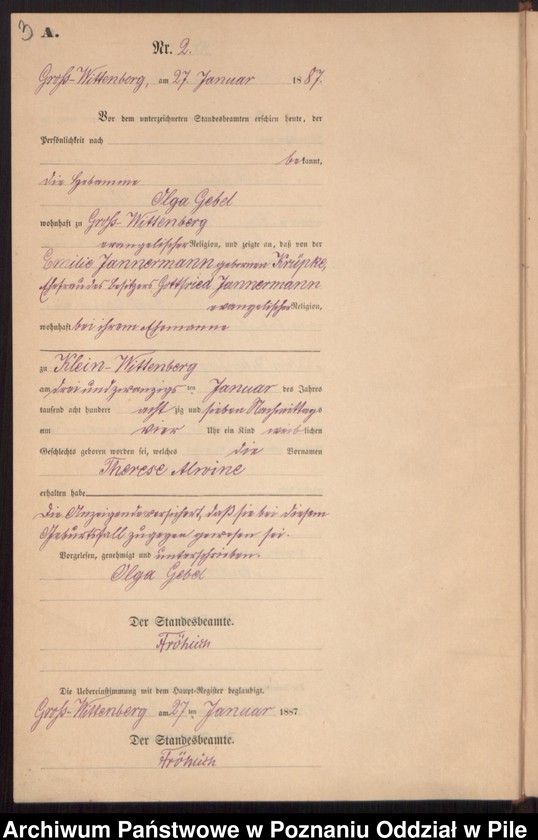 3 A.
Nr. 2.
Groß-Wittenberg, am 27. Januar 1887.
Vor dem unterzeichneten Standesbeamten erschien heute, der
Persönlichkeit nach
bekannt,
die Hebamme
Olga Gebel
wohnhaft zu Groß-Wittenberg
evangelischer Religion, und zeigte an, daß von der
Emilie Jannermann gebornen Krüpke,
Ehefrau des Besitzers Gottfried Jannermann
evangelischer Religion,
wohnhaft bei ihrem Ehemanne
zu Klein-Wittenberg
am dreiundzwanzigsten Januar des Jahres
tausend acht hundert achtzig und sieben Nachmittags
um vier Uhr ein Kind weiblichen
Geschlechts geboren worden sei, welches die Vornamen
Therese Alwine
erhalten habe
Die Anzeigende versichert, daß sie bei diesem
Geburtsfall zugegen gewesen sei.
Vorgelesen, genehmigt und unterschrieben.
Olga Gebel
Der Standesbeamte.
Fröhlich
Die Uebereinstimmung mit dem Haupt-Register beglaubigt.
Groß-Wittenberg am 27ten Januar 1887
Der Standesbeamte.
Fröhlich
Archiwum Państwowe w Poznaniu Oddział w Pile